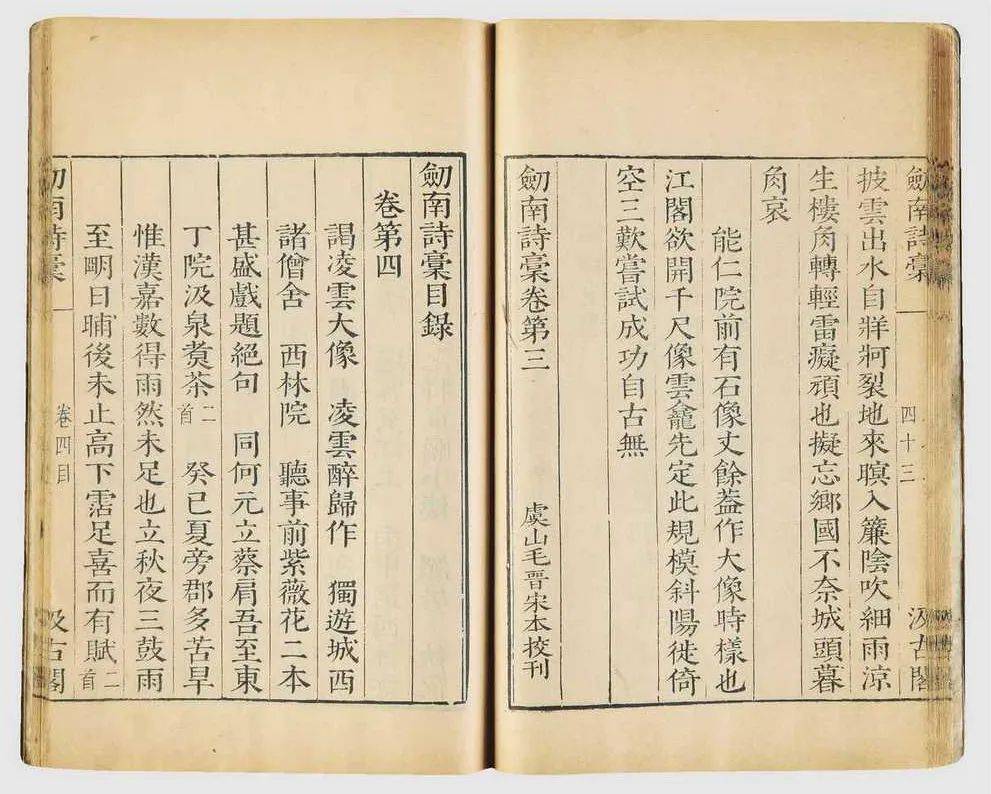 劒南詩稾
四十三
汲古閣
披雲出水自牂牁裂地來暝入簾陰吹細雨涼
生樓角轉輕雷癡頑也擬忘鄉國不奈城頭暮
角哀
能仁院前有石像丈餘葢作大像時樣也
江閣欲開千尺像雲龕先定此規模斜陽徙倚
空三歎嘗試成功自古無
劒南詩稾卷第三
虞山毛晋宋本挍刊
劒南詩稾目録
卷第四
謁凌雲大像 凌雲醉歸作 獨遊城西
諸僧舍 西林院 聽事前紫薇花二本
甚盛戲題絕句 同何元立蔡肩吾至東
丁院汲泉煑茶二首 癸巳夏旁郡多苦旱
惟漢嘉數得雨然未足也立秋夜三鼓雨
至明日晡後未止高下霑足喜而有賦二首
劒南詩稾
卷四目
汲古閣